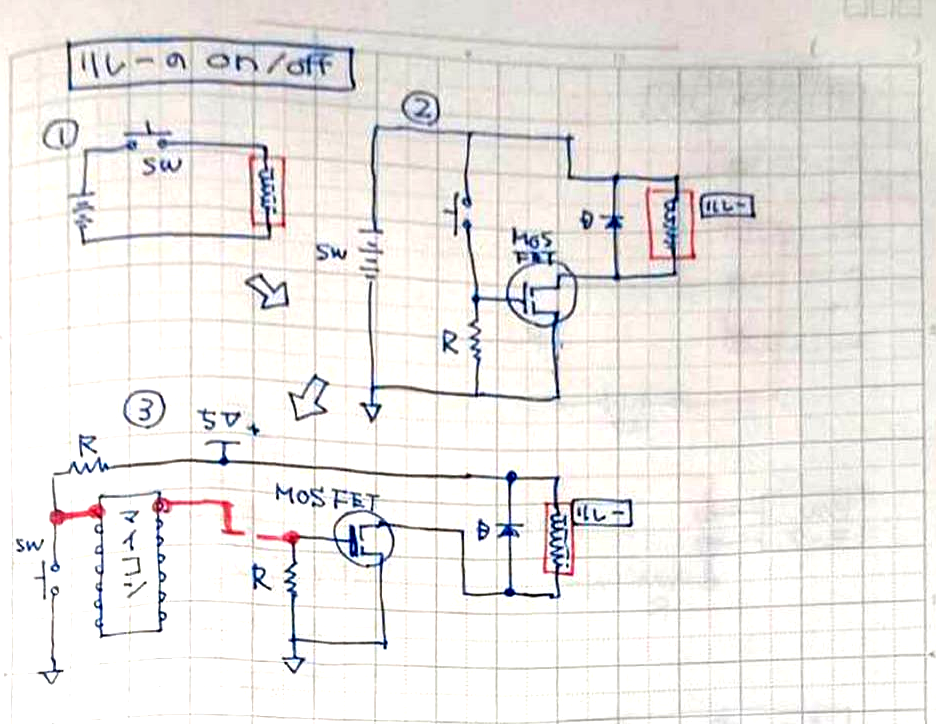 リレーの on/off
①
SW
②
SW
MOS
FET
D
リレー
R
③
5V
R
SW
マイコン
MOSFET
R
D
リレー